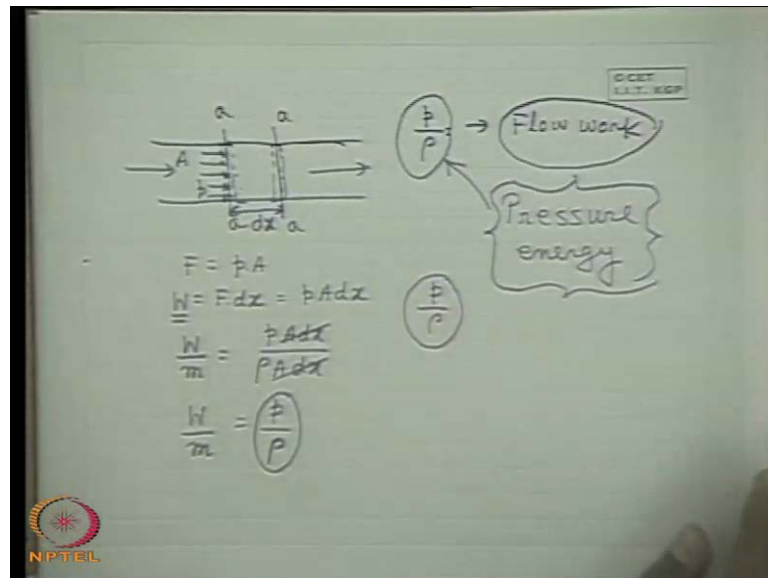 © CET
I.I.T. KGP
a a
A
p
a dx a
p/ρ → Flow work
Pressure
energy
F = pA
W = Fdx = pAdx
p/ρ
W/m = pAdx/ρAdx
W/m = p/ρ
NPTEL